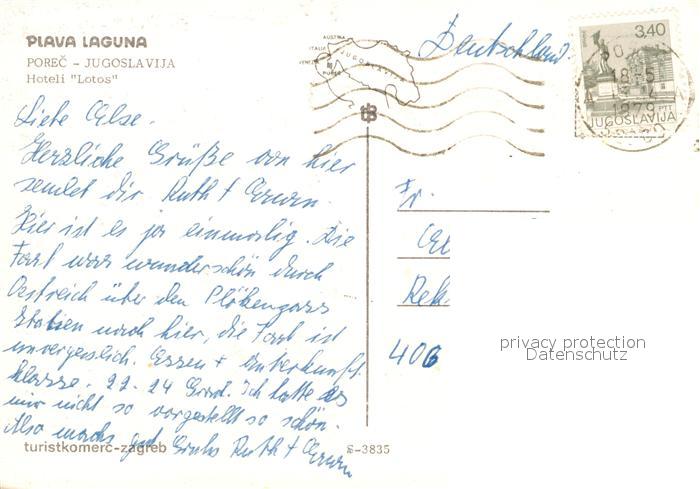 PLAVA LAGUNA
POREČ – JUGOSLAVIJA
Hoteli "Lotos"
AUSTRIA
ITALIA
JUGOSLAVIJA
POREČ
Deutschland.
3,40
1879
PTT
JUGOSLAVIJA
Liebe Else.
Herzliche Grüße von hier
sendet dir Ruth + Erwin.
Hier ist es ja einmalig. Die
Fart war wunderschön durch
Oestreich über den Plökenpass
Italien nach hier, die Fart ist
unvergesslich. Essen + Unterkunft
klasse. 22-24 Grad. Ich hatte es
mir nicht so vorgestellt so schön.
Also machs gut Gruhs Ruth + Erwin
Fr.
406
privacy protection
Datenschutz
turistkomerc-zagreb
S-3835